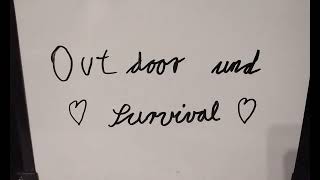 Outdoor und
♡ survival ♡